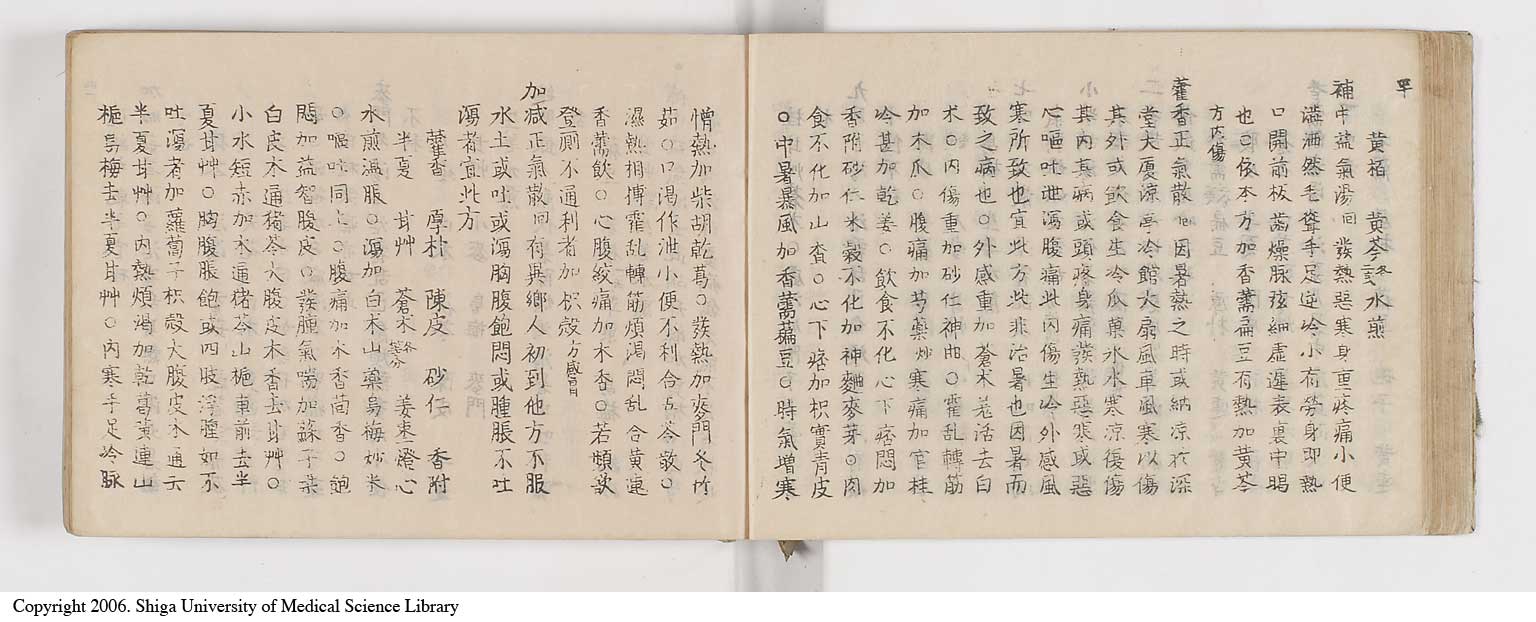 黄栢 黄芩 各三戔 水煎
補中益氣湯 回 發熱惡寒身重疼痛小便
澁洒然毛聳手足逆冷小有勞身即熱
口開前板齒燥脉弦細虛遲表裏中暍
也〇依本方加香薷扁豆有熱加黄芩
方内傷
藿香正氣散 回 因暑熱之時或納凉於深
堂大厦凉亭冷館大扇風車風寒以傷
其外或飲食生冷瓜菓氷水寒凉復傷
其内其病或頭疼身痛發熱惡寒或惡
心嘔吐泄瀉腹痛此内傷生冷外感風
寒所致也宜此方此非治暑也因暑而
致之病也〇外感重加蒼朮羌活去白
朮〇内傷重加砂仁神曲〇霍乱轉筋
加木瓜〇腹痛加芍藥炒寒痛加官桂
冷甚加乾姜〇飲食不化心下痞悶加
香附砂仁米穀不化加神麯麥芽〇肉
食不化加山査〇心下痞加枳實青皮
〇中暑暴風加香薷藊豆〇時氣増寒
憎熱加柴胡乾葛〇發熱加麥門冬竹
茹〇口渇作泄小便不利合五苓散〇
濕熱相搏霍乱轉筋煩渇悶乱合黄連
香薷飲〇心腹絞痛加木香〇若頻欲
登厠不通利者加枳殻 方感冒
加减正氣散 回 有異郷人初到他方不服
水土或吐或瀉胸腹飽悶或腫脹不吐
瀉者宜此方
藿香 厚朴 陳皮 砂仁 香附
半夏 甘艸 蒼朮 各等分 姜棗燈心
水煎温服〇瀉加白朮山藥烏梅炒米
〇嘔吐同上〇腹痛加木香茴香〇飽
悶加益智腹皮〇發腫氣喘加蘇子桒
白皮木通猪苓大腹皮木香去甘艸〇
小水短赤加木通猪苓山梔車前去半
夏甘艸〇胸腹脹飽或四肢浮腫如不
吐瀉者加蘿蔔子枳殻大腹皮木通去
半夏甘艸〇内熱煩渇加乾葛黄連山
梔烏梅去半夏甘艸〇内寒手足冷脉
Copyright 2006. Shiga University of Medical Science Library